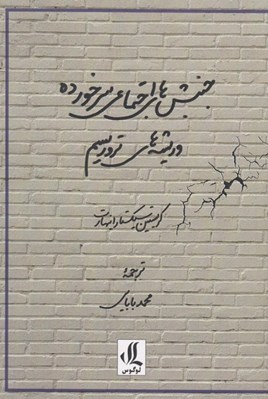 جنبش‌های اجتماعی سرخورده
و ریشه‌های تروریسم
کریستین سیکستا راینهارت
ترجمهٔ
محمد بابایی
لوگوس